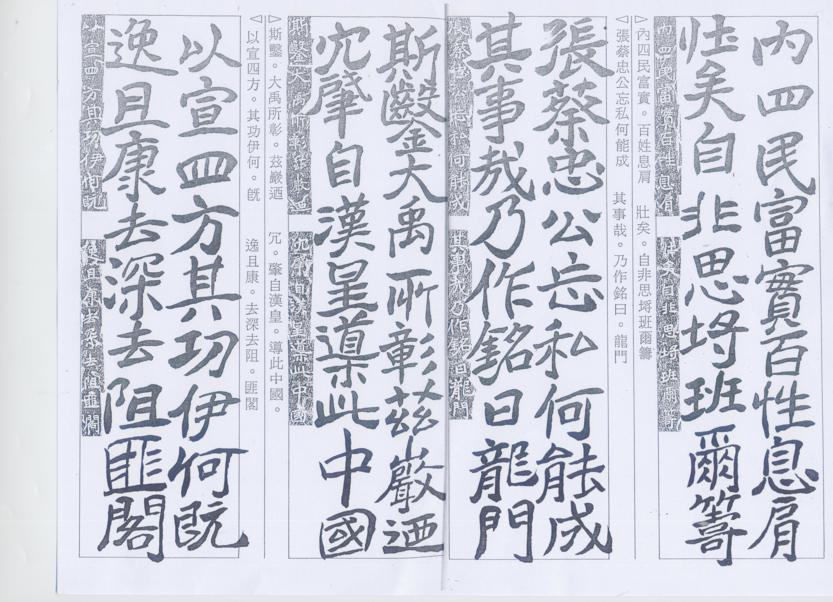 內四民富實百性息肩
壯矣自非思埒班爾籌
▽內四民富實。百姓息肩 壯矣。自非思埒班爾籌
張蔡忠公忘私何能成
其事哉乃作銘曰龍門
▽張蔡忠公忘私何能成 其事哉。乃作銘曰。龍門
斯鑿大禹所彰茲巖迺
冗肇自漢皇導此中國
▽斯鑿。大禹所彰。茲巖迺 冗。肇自漢皇。導此中國。
以宣四方其功伊何既
逸且康去深去阻匪閣
▽以宣四方。其功伊何。既 逸且康。去深去阻。匪閣